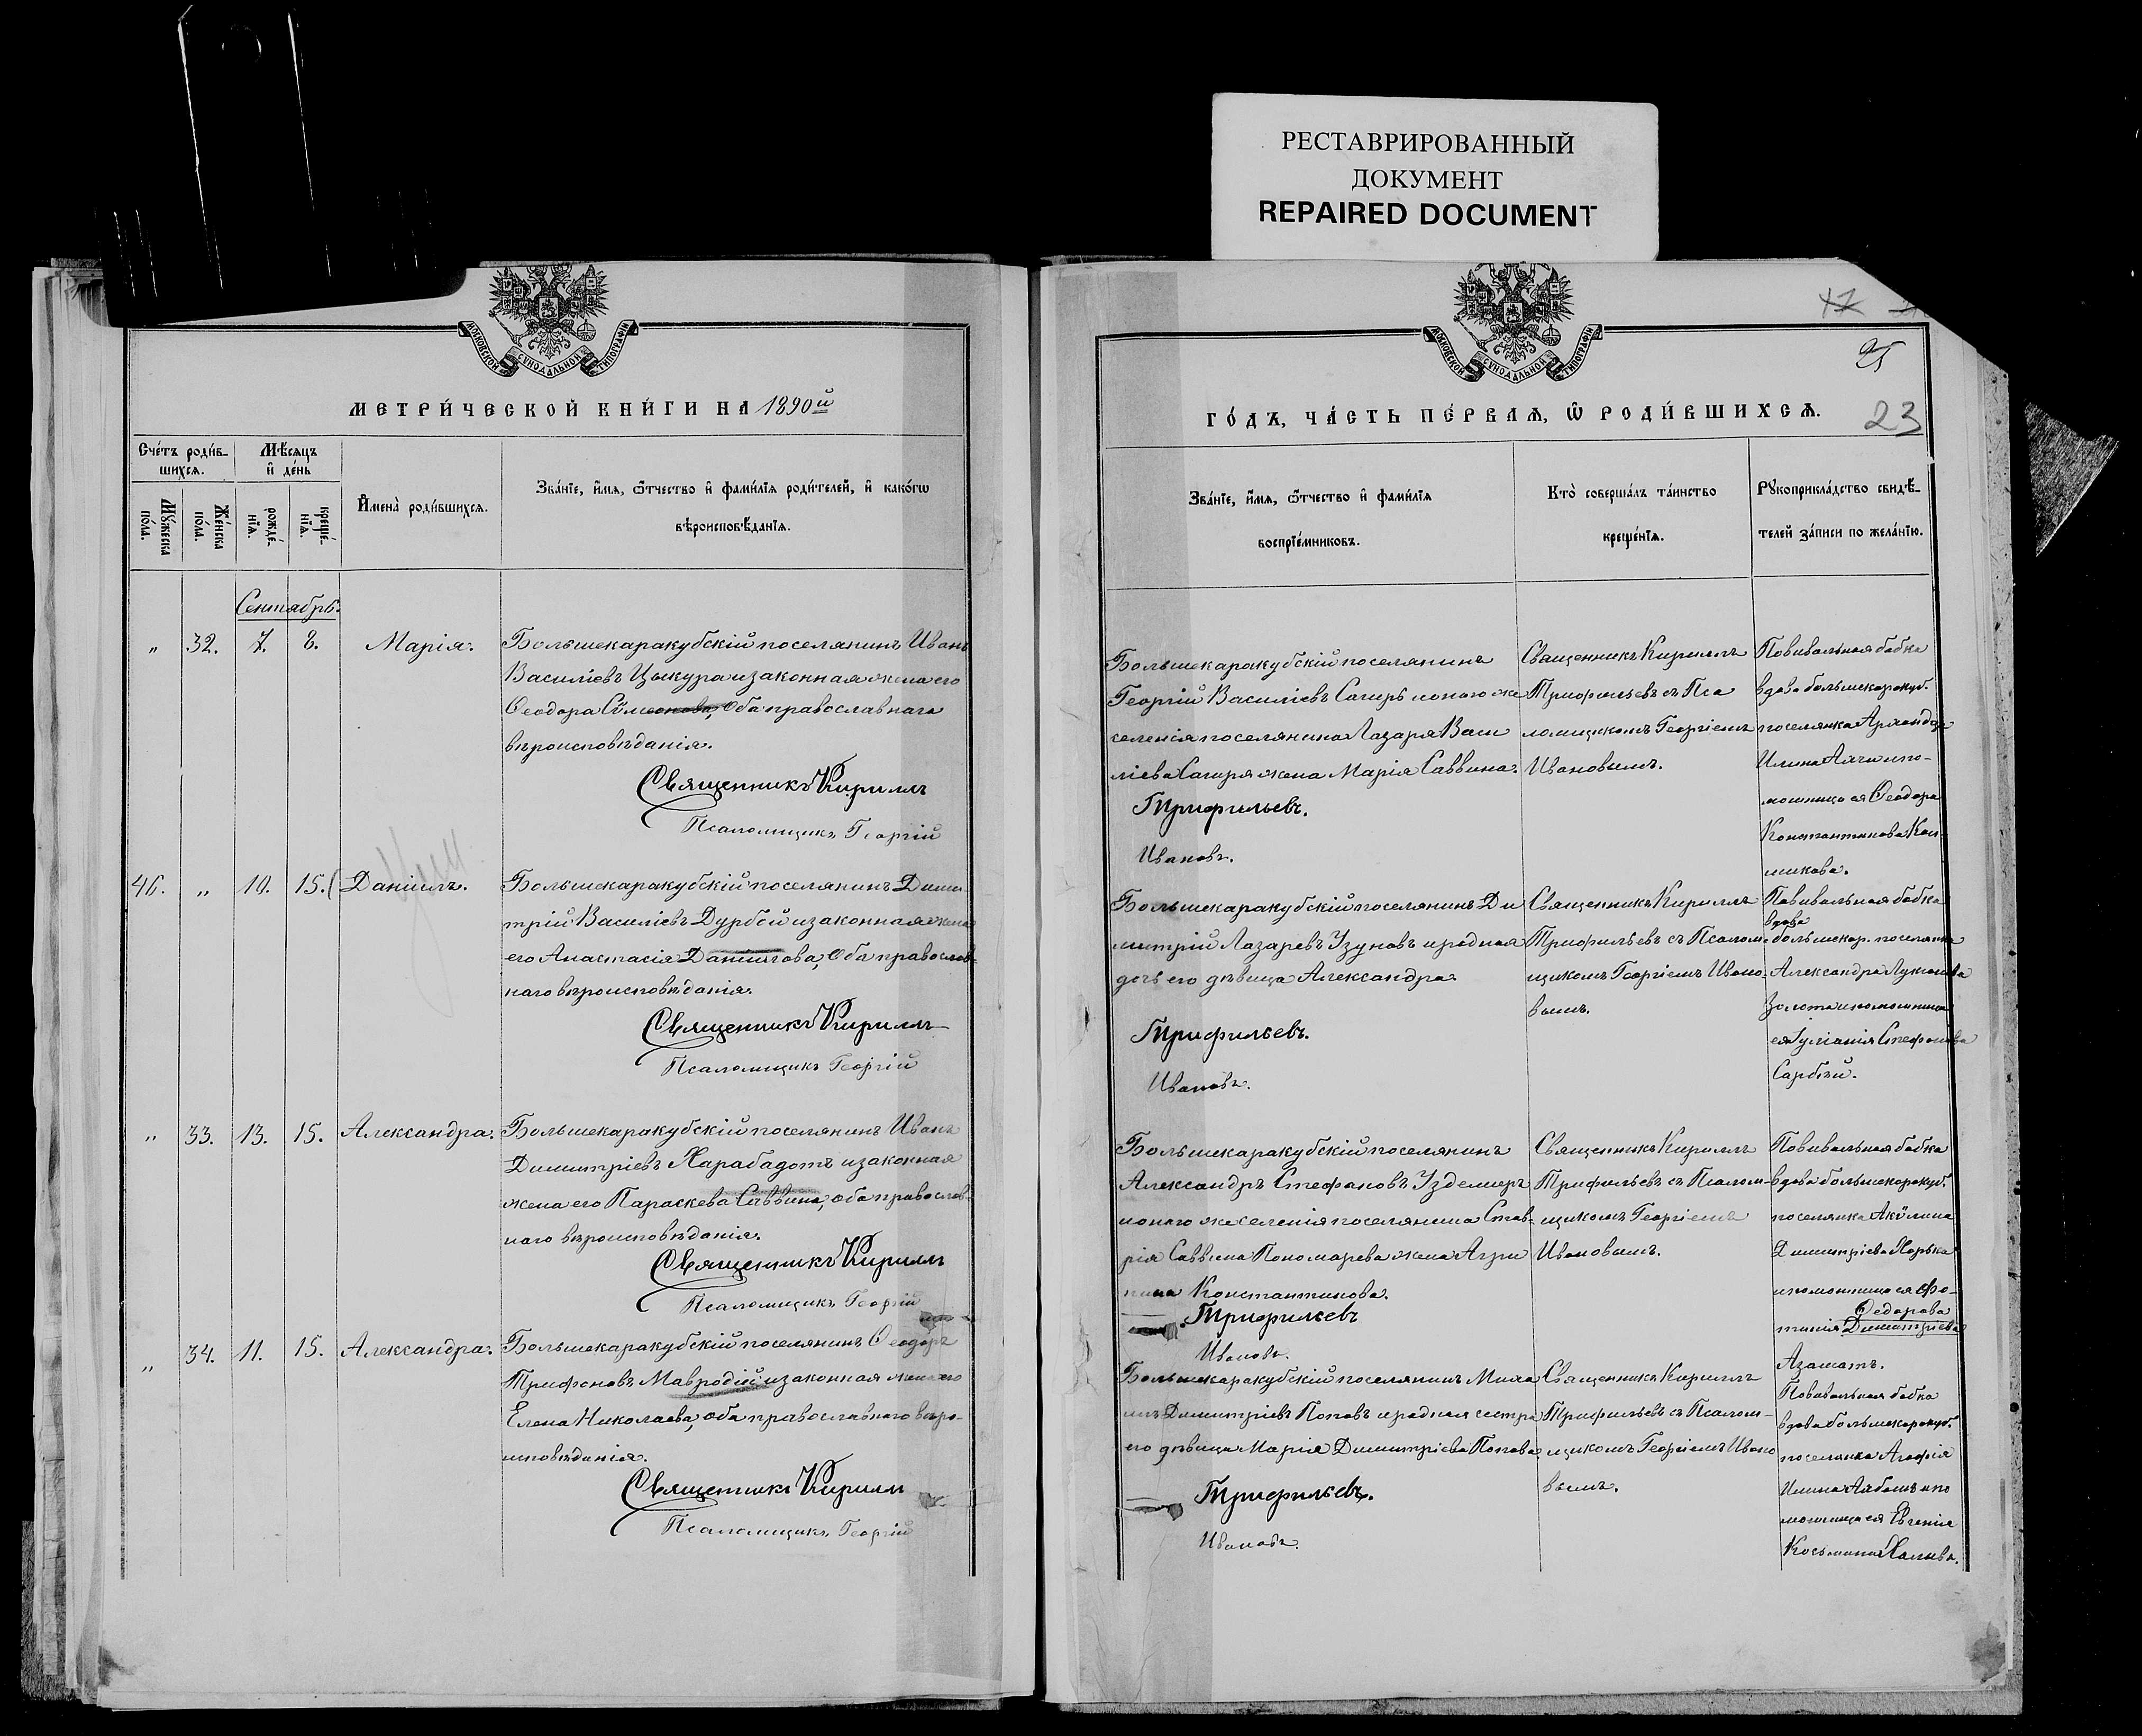 РЕСТАВРИРОВАННЫЙ
ДОКУМЕНТ
REPAIRED DOCUMENT
МОСКОВСКОЙ СѴНОДАЛЬНОЙ ТИПОГРАФІИ
МЕТРИ́ЧЕСКОЙ КНИ́ГИ НА 1890й
Сче́тъ роди́в-
шихсѧ.
Мѣ́сѧцъ
и҆ де́нь
Мꙋ́жеска
по́ла.
Же́нска
по́ла.
рожде́-
нїѧ.
креще́-
нїѧ.
И҆мена̀ роди́вшихсѧ.
Зва́нїе, и҆́мѧ, ѻ҆́тчество и҆ фами́лїѧ роди́телей, и҆ како́гѡ
вѣроисповѣ́данїѧ.
Сентябрь.
" 32. 7. 8. Марія. Большекаракубскій поселянинъ Иванъ
Василіевъ Цыкура и законная жена его
Ѳеодора Сѵмеонова, оба православнаго
вѣроисповѣданія.
Священникъ Кириллъ
Псаломщикъ Георгій
46. " 10. 15. Даніилъ. Большекаракубскій поселянинъ Дими-
трій Василіевъ Дурбей и законная жена
его Анастасія Даніилова, оба православ-
наго вѣроисповѣданія.
Священникъ Кириллъ
Псаломщикъ Георгій
" 33. 13. 15. Александра. Большекаракубскій поселянинъ Иванъ
Димитріевъ Харабадотъ и законная
жена его Параскева Саввина, оба православ-
наго вѣроисповѣданія.
Священникъ Кириллъ
Псаломщикъ Георгій
" 34. 11. 15. Александра. Большекаракубскій поселянинъ Ѳеодоръ
Трифоновъ Мавродій и законная жена его
Елена Николаева, оба православнаго вѣро-
исповѣданія.
Священникъ Кириллъ
Псаломщикъ Георгій
МОСКОВСКОЙ СѴНОДАЛЬНОЙ ТИПОГРАФІИ
17
25
ГО́ДЪ, ЧА́СТЬ ПЕ́РВАѦ, Ѡ҆ РОДИ́ВШИХСѦ. 23
Зва́нїе, и҆́мѧ, ѻ҆́тчество и҆ фами́лїѧ
воспрїе́мниковъ.
Кто̀ соверша́лъ та́инство
креще́нїѧ.
Рꙋкоприкла́дство свидѣ́-
телей за́писи по жела́нїю.
Большекаракубскій поселянинъ
Георгій Василіевъ Сагирь и онаго же
селенія поселянина Лазаря Васи
ліева Сагиря жена Марія Саввина.
Трифильевъ.
Ивановъ.
Священникъ Кириллъ
Трифильевъ съ Пса
ломщикомъ Георгіемъ
Ивановымъ.
Повивальная бабка
вдова большекаракуб.
поселянка
мощница ея Ѳеодора
Константинова
Большекаракубскій поселянинъ Ди
митрій Лазаревъ Узуновъ и родная
дочь его дѣвица Александра.
Трифильевъ.
Ивановъ.
Священникъ Кириллъ
Трифильевъ съ Псалом-
щикомъ Георгіемъ Ивано-
вымъ.
Повивальная бабка
вдова
большекар. поселянка
Александра Лукинова
Золота и помощница
ея Іуліанія Стефанова
Сарбей.
Большекаракубскій поселянинъ
Александръ Стефановъ Уздемиръ
и онаго же селенія поселянина Став-
рія Саввина Пономарева жена Агри
пина Константинова.
Трифильевъ
Ивановъ.
Священникъ Кириллъ
Трифильевъ съ Псалом-
щикомъ Георгіемъ
Ивановымъ.
Повивальная бабка
вдова большекаракуб.
поселянка Акѵлина
Димитріева Хорька
и помощница ея Фо-
Ѳедорова
тинія Димитріева
Азаматъ.
Большекаракубскій поселянинъ Миха
илъ Димитріевъ Поповъ и родная сестра
его дѣвица Марія Димитріева Попова.
Трифильевъ.
Ивановъ.
Священникъ Кириллъ
Трифильевъ съ Псалом-
щикомъ Георгіемъ Ивано
вымъ.
Повивальная бабка
вдова большекаракуб.
поселянка Агафія
мощница ея Евгенія
Косьмина